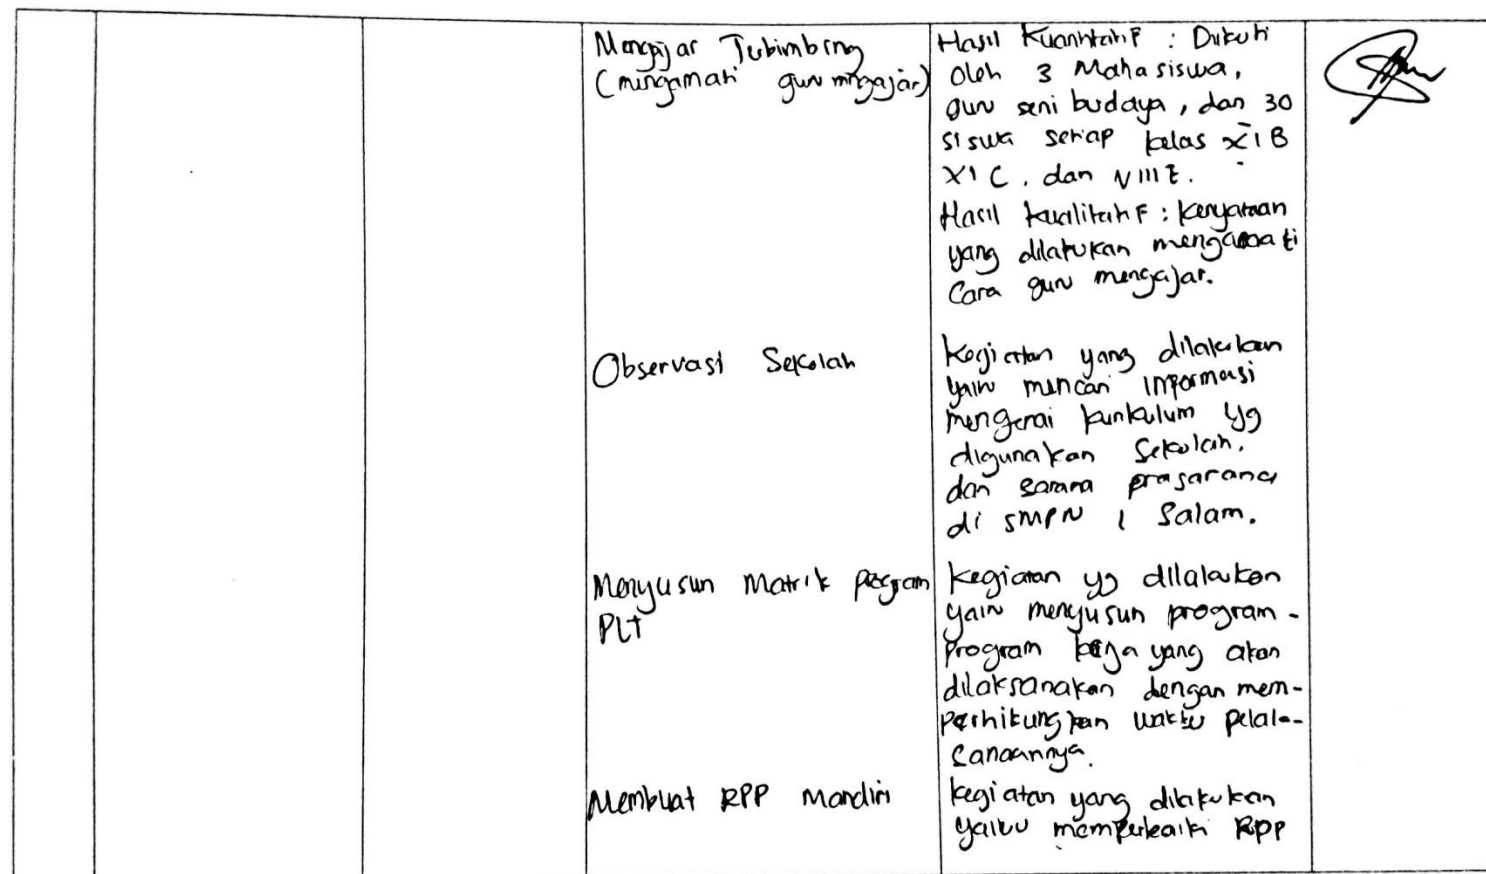 Mengajar Terbimbing
(mengamati guru mengajar)
Hasil Kuantitatif : Diikuti
oleh 3 Mahasiswa,
guru seni budaya, dan 30
siswa setiap kelas XI B
XI C, dan VIII E.
Hasil kualitatif : kenyataan
yang dilakukan mengamati
Cara guru mengajar.
Observasi Sekolah
Kegiatan yang dilakukan
yaitu mencari informasi
mengenai kurikulum yg
digunakan Sekolah,
dan sarana prasarana
di SMPN 1 Salam.
Menyusun Matrik program
PLT
kegiatan yg dilakukan
yaitu menyusun program-
program kerja yang akan
dilaksanakan dengan mem-
perhitungkan waktu pelak-
sanaannya.
Membuat RPP Mandiri
kegiatan yang dilakukan
yaitu memperbaiki RPP